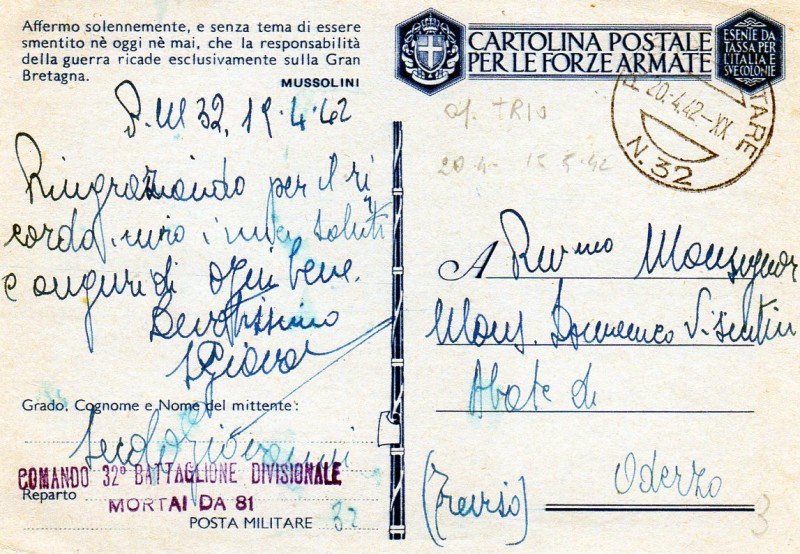 Affermo solennemente, e senza tema di essere
smentito nè oggi nè mai, che la responsabilità
della guerra ricade esclusivamente sulla Gran
Bretagna.
MUSSOLINI
P.M 32, 19.4.42
Ringraziando per il ri
cordo, invio i miei saluti
e auguri di ogni bene.
Devotissimo
Grado, Cognome e Nome del mittente:
COMANDO 32º BATTAGLIONE DIVISIONALE
MORTAI DA 81
Reparto
POSTA MILITARE 32
CARTOLINA POSTALE
PER LE FORZE ARMATE
ESENTE DA
TASSA PER
L'ITALIA E
SVE COLONIE
20.4.42-XX
TARE
N. 32
TRIO
20.4. 15.5.42
A Rev.mo Monsignor
Mons. Domenico Visentin
Abate di
Oderzo
(Treviso)
3